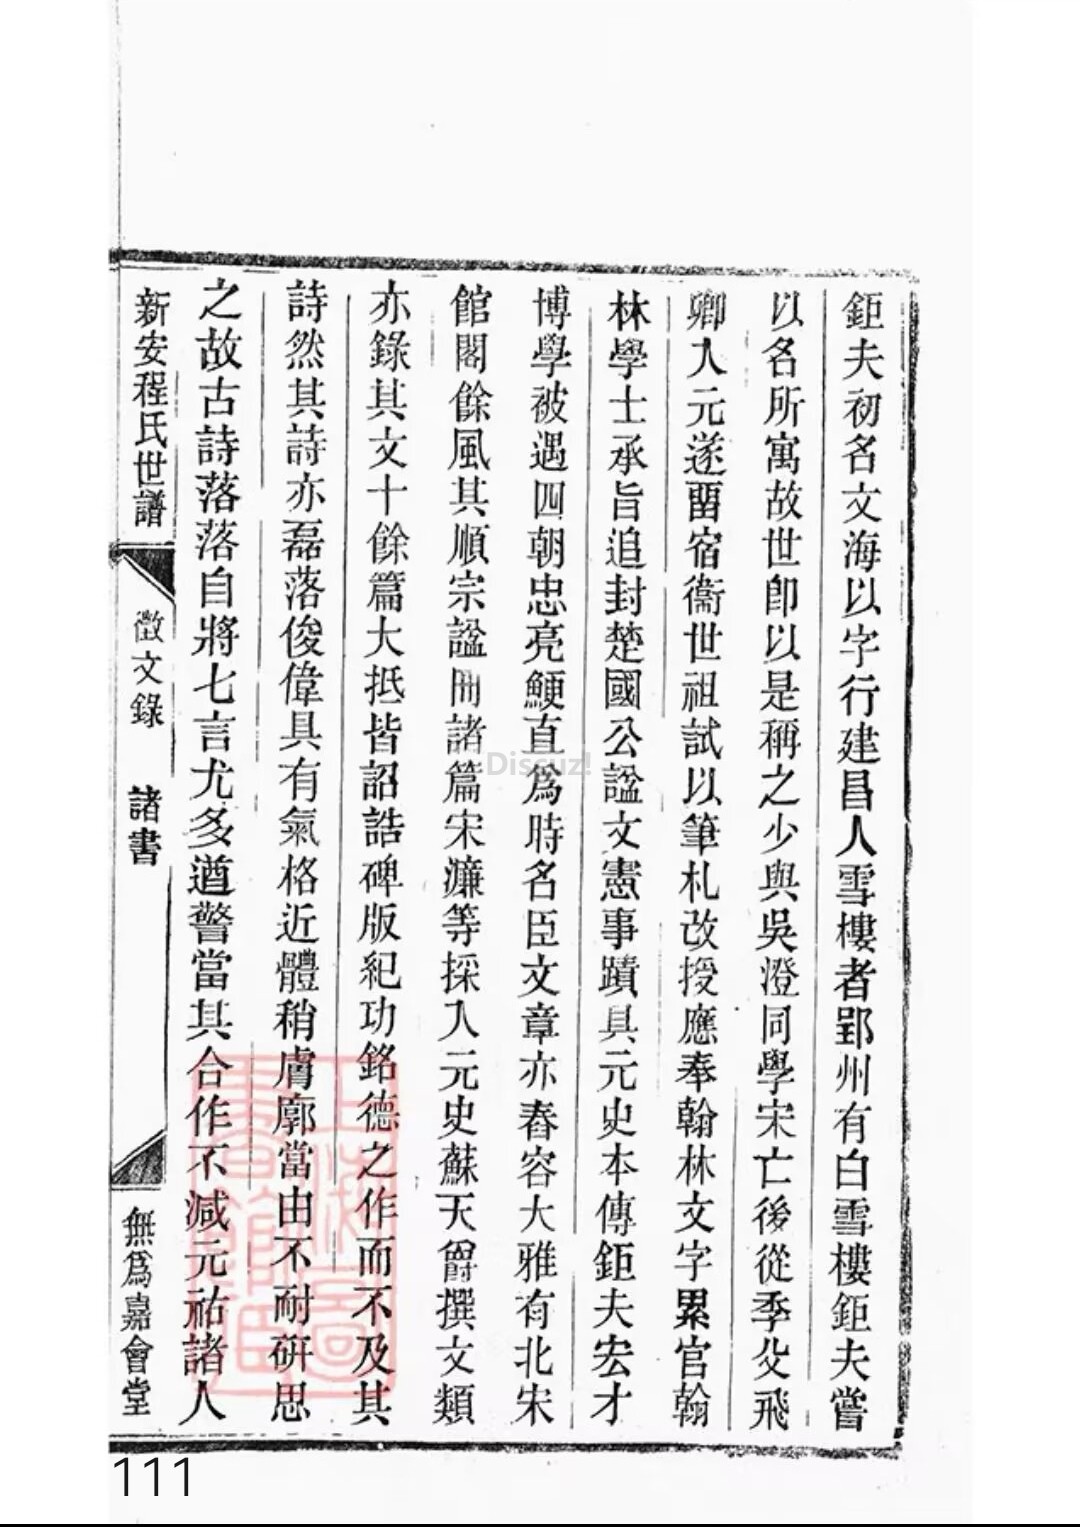 鉅夫初名文海以字行建昌人雪樓者郢州有白雪樓鉅夫嘗
以名所寓故世卽以是稱之少與吳澄同學宋亡後從季父飛
卿入元遂留宿衞世祖試以筆札改授應奉翰林文字累官翰
林學士承旨追封楚國公諡文憲事蹟具元史本傳鉅夫宏才
博學被遇四朝忠亮鯁直爲時名臣文章亦舂容大雅有北宋
館閣餘風其順宗諡冊諸篇宋濂等採入元史蘇天爵撰文類
亦錄其文十餘篇大抵皆詔誥碑版紀功銘德之作而不及其
詩然其詩亦磊落俊偉具有氣格近體稍膚廓當由不耐研思
之故古詩落落自將七言尤多遒警當其合作不減元祐諸人
新安程氏世譜 徵文錄 諸書 無爲嘉會堂
Discuz!
111